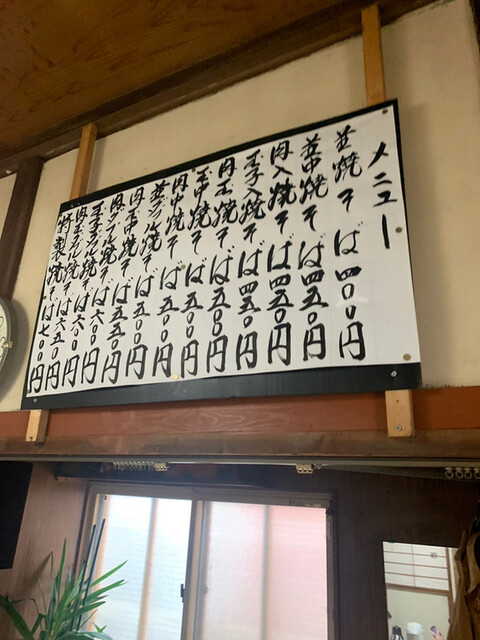 メニュー
並焼そば四〇〇円
並中焼そば四五〇円
肉入焼そば四五〇円
玉子入焼そば四五〇円
肉玉焼そば五〇〇円
玉中焼そば五〇〇円
肉中焼そば五〇〇円
並ダブル焼そば五五〇円
肉玉中焼そば五五〇円
肉ダブル焼そば六〇〇円
玉子ダブル焼そば六〇〇円
肉玉ダブル焼そば六五〇円
特製焼そば七〇〇円